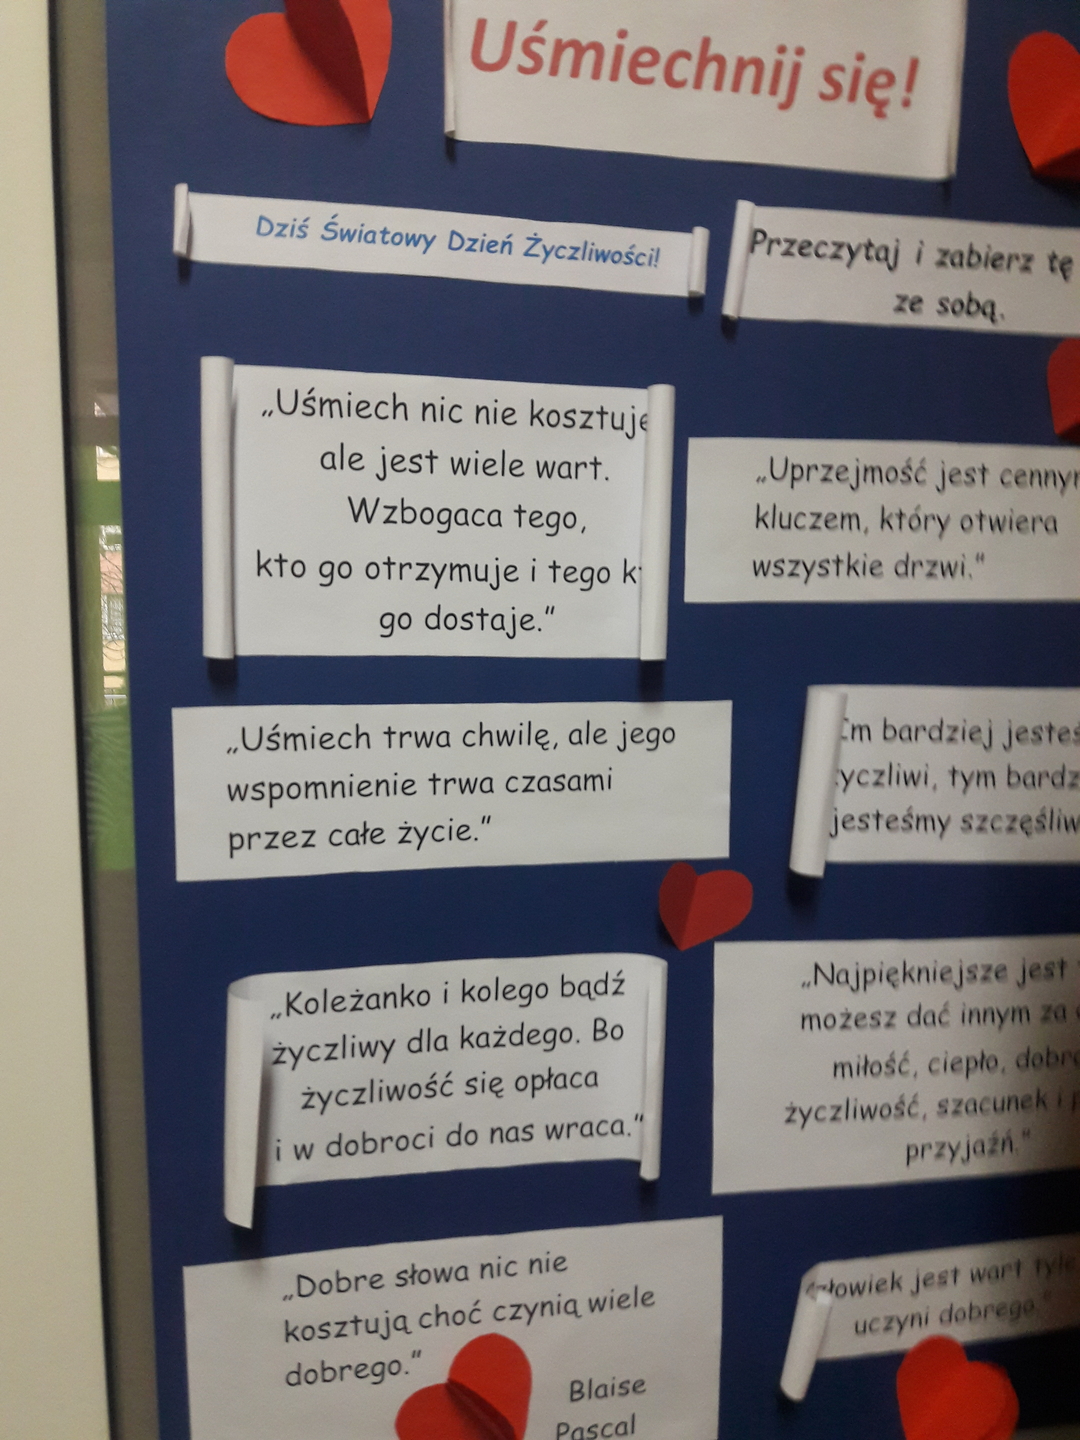 Uśmiechnij się!
Dziś Światowy Dzień Życzliwości!
Przeczytaj i zabierz tę
ze sobą.
„Uśmiech nic nie kosztuje
ale jest wiele wart.
Wzbogaca tego,
kto go otrzymuje i tego
go dostaje."
„Uprzejmość jest
kluczem, który otwiera
wszystkie drzwi."
„Uśmiech trwa chwilę, ale jego
wspomnienie trwa czasami
przez całe życie."
bardziej
tym
jesteśmy
„Koleżanko i kolego bądź
życzliwy dla każdego. Bo
życzliwość się opłaca
i w dobroci do nas wraca."
„Najpiękniejsze jest
możesz dać innym za
miłość, ciepło,
życzliwość, szacunek i
przyjaźń."
„Dobre słowa nic nie
kosztują choć czynią wiele
dobrego."
Blaise
Pascal
jest wart tyle
uczyni dobrego."